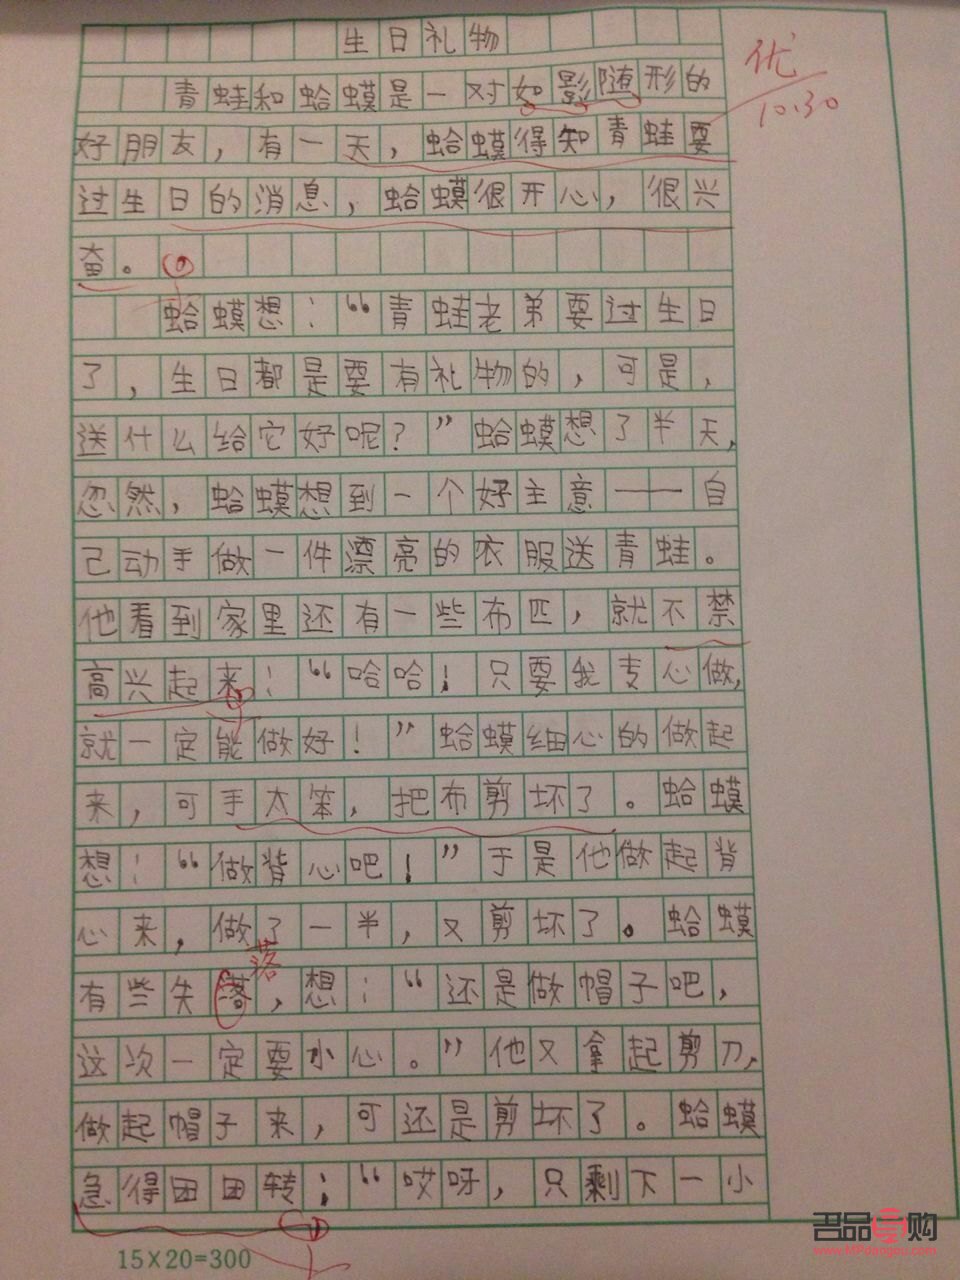 生日礼物
优
10.30
青蛙和蛤蟆是一对如影随形的
好朋友，有一天，蛤蟆得知青蛙要
过生日的消息，蛤蟆很开心，很兴
奋。
蛤蟆想：“青蛙老弟要过生日
了，生日都是要有礼物的，可是，
送什么给它好呢？”蛤蟆想了半天，
忽然，蛤蟆想到一个好主意——自
己动手做一件漂亮的衣服送青蛙。
他看到家里还有一些布匹，就不禁
高兴起来：“哈哈！只要我专心做，
就一定能做好！”蛤蟆细心的做起
来，可手太笨，把布剪坏了。蛤蟆
想：“做背心吧！”于是他做起背
心来，做了一半，又剪坏了。蛤蟆
落
有些失落，想：“还是做帽子吧，
这次一定要小心。”他又拿起剪刀，
做起帽子来，可还是剪坏了。蛤蟆
急得团团转：“哎呀，只剩下一小
15×20=300